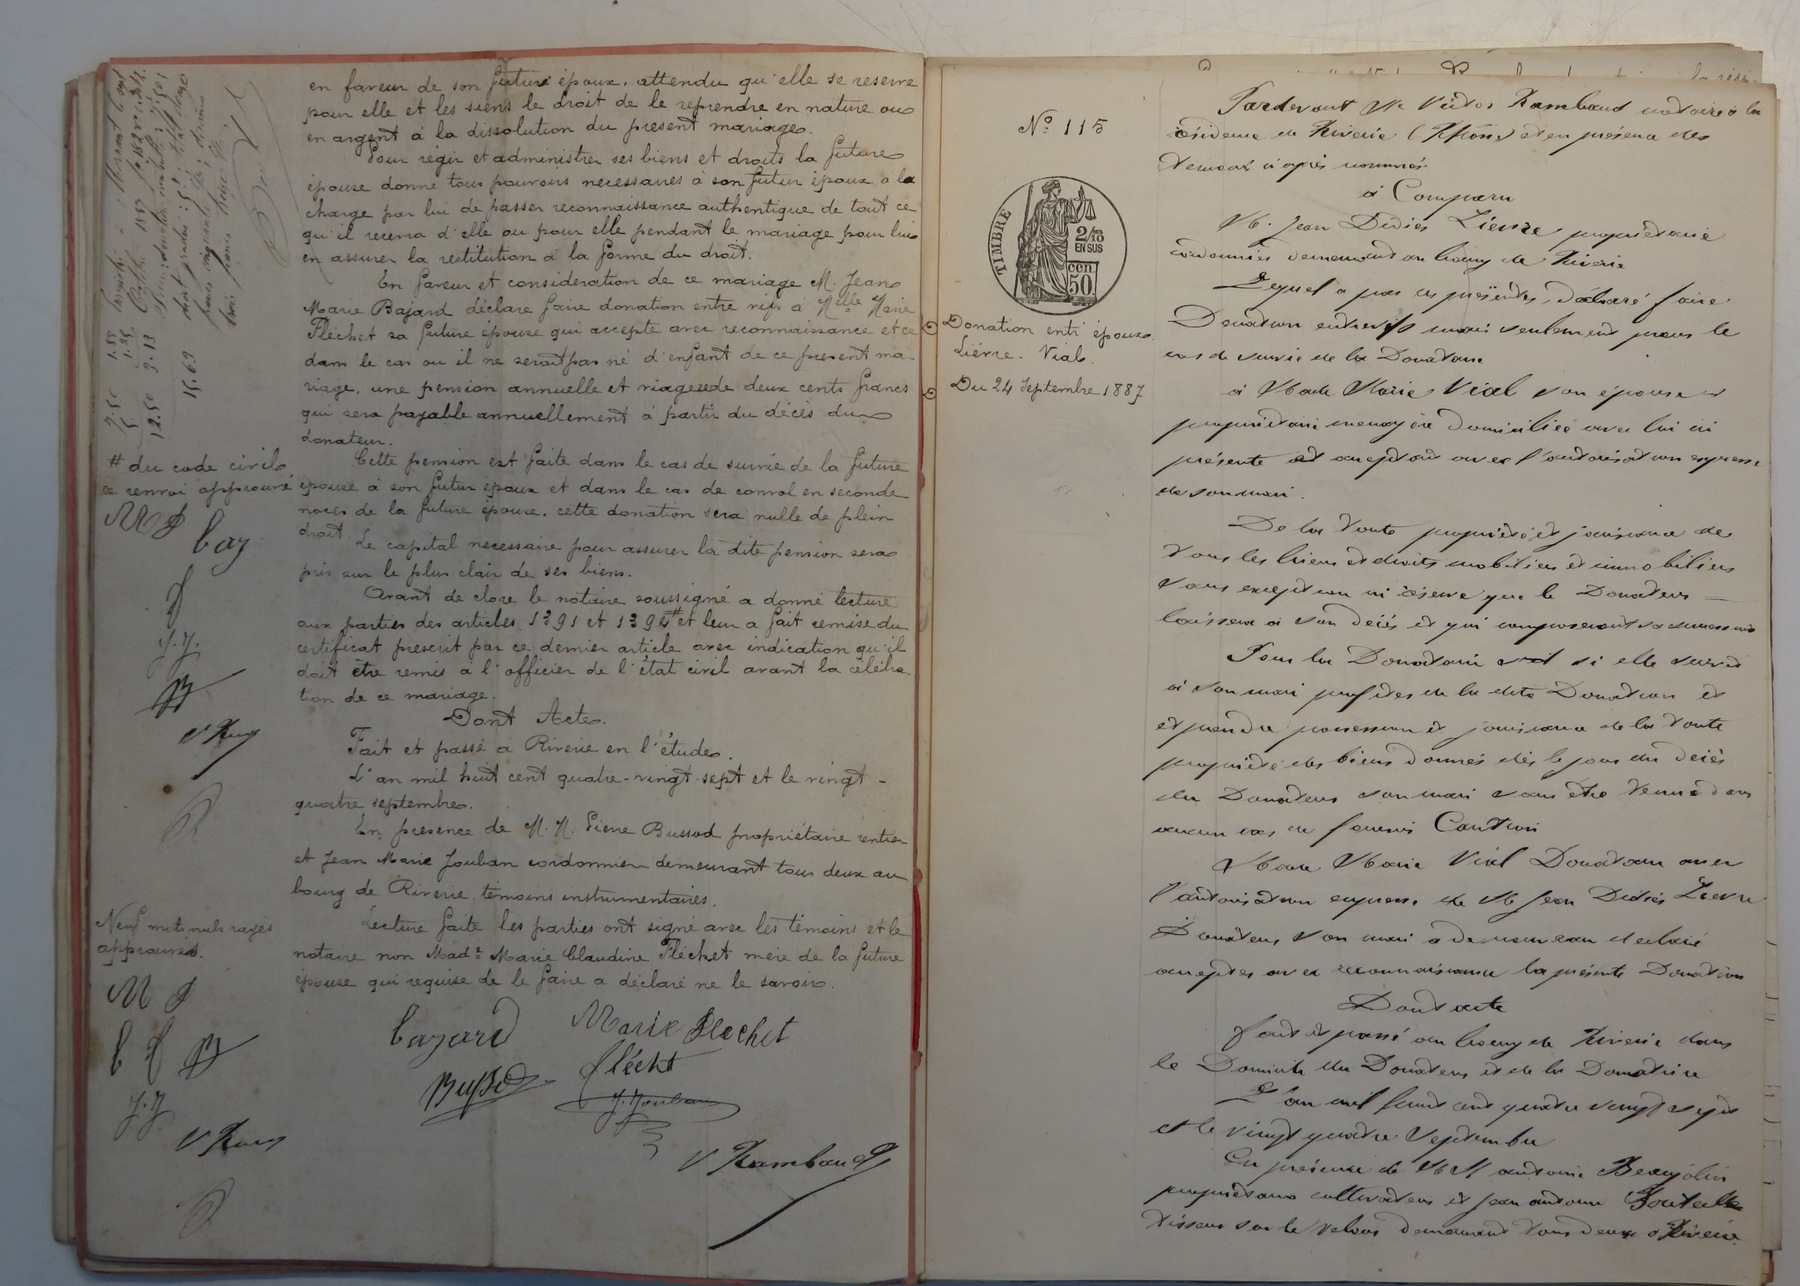 en faveur de son futur époux, attendu qu'elle se reserve
pour elle et les siens le droit de le reprendre en nature ou
en argent à la dissolution du present mariage.
Pour régir et administrer ses biens et droits la future
épouse donne tous pouvoirs necessaires à son futur époux a la
charge par lui de passer reconnaissance authentique de tout ce
qu'il recevra d'elle ou pour elle pendant le mariage pour lui
en assurer la restitution à la forme du droit.
En faveur et consideration de ce mariage M. Jean
Marie Bajard déclare faire donation entre vifs à Melle Marie
Fléchet sa future épouse qui accepte avec reconnaissance et ce
dans le cas ou il ne serait pas né d'enfant de ce present ma-
riage, une pension annuelle et viagere de deux cents francs
qui sera payable annuellement à partir du décès du
donateur.
Cette pension est faite dans le cas de survie de la future
épouse à son futur époux et dans le cas de convol en seconde
noces de la future épouse, cette donation sera nulle de plein
droit.
Le capital necessaire pour assurer la dite pension sera
pris sur le plus clair de ses biens.
Avant de clore le notaire soussigné a donné lecture
aux parties des articles 1391 et 1394 # et leur a fait remise du
certificat prescrit par ce dernier article avec indication qu'il
doit être remis à l'officier de l'état civil avant la célébra
tion de ce mariage.
Dont Acte.
Fait et passé à Riverie en l'étude.
L'an mil huit cent quatre-vingt-sept et le vingt-
quatre septembre.
En presence de M.M. Pierre Bussod propriétaire rentier
et Jean Marie Jouban cordonnier demeurant tous deux au
bourg de Riverie, témoins instrumentaires.
Lecture faite les parties ont signé avec les témoins et le
notaire non Made Marie Claudine Fléchet mère de la future
épouse qui requise de le faire a déclaré ne le savoir.
bajard
Marie Flechet
fléchet
J. Jouban
V Rambaud
# du code civil
ce renvoi approuvé
baj
J.J.
Neuf mots nuls rayés
approuvés.
J.J.
2.50
1.88
12.50
3.13
15.63
No 115
TIMBRE
2/10
EN SUS
50 cen.
Donation entre époux
Lièvre - Vial
Du 24 Septembre 1887
Pardevant Me Victor Rambaud notaire à la
résidence de Riverie (Rhône) et en présence des
témoins ci après nommés
a Comparu
M. Jean Didier Lièvre propriétaire
cordonnier demeurant au bourg de Riverie
Lequel a par ces présentes, déclaré faire
Donation entrevifs mais seulement pour le
cas de survie de la Donataire
à Made Marie Vial son épouse
propriétaire menagère domiciliée avec lui ici
présente et acceptant avec l'autorisation expresse
de son mari.
De la toute propriété et jouissance de
tous les biens et droits mobiliers et immobiliers
sans exception ni réserve que le Donateur
laissera à son décès et qui composeront sa succession
Pour la Donataire si elle survit
à son mari profiter de la dite Donation et
et prendre possession et jouissance de la toute
propriété des biens donnés dès le jour du décès
du Donateur son mari sans être tenue dans
aucun cas de fournir Caution
Made Marie Vial Donataire avec
l'autorisation expresse de M Jean Didier Lièvre
Donateur son mari a de nouveau déclaré
accepter avec reconnaissance la présente Donation
Dont acte
fait et passé au bourg de Riverie dans
le Domicile du Donateur et de la Donatrice
L'an mil huit cent quatre vingt sept
et le vingt quatre Septembre
En présence de MM antoine Beaujolin
propriétaire cultivateur et Jean antoine Bouteille
tisseur sur le velours demeurant tous deux à Riverie